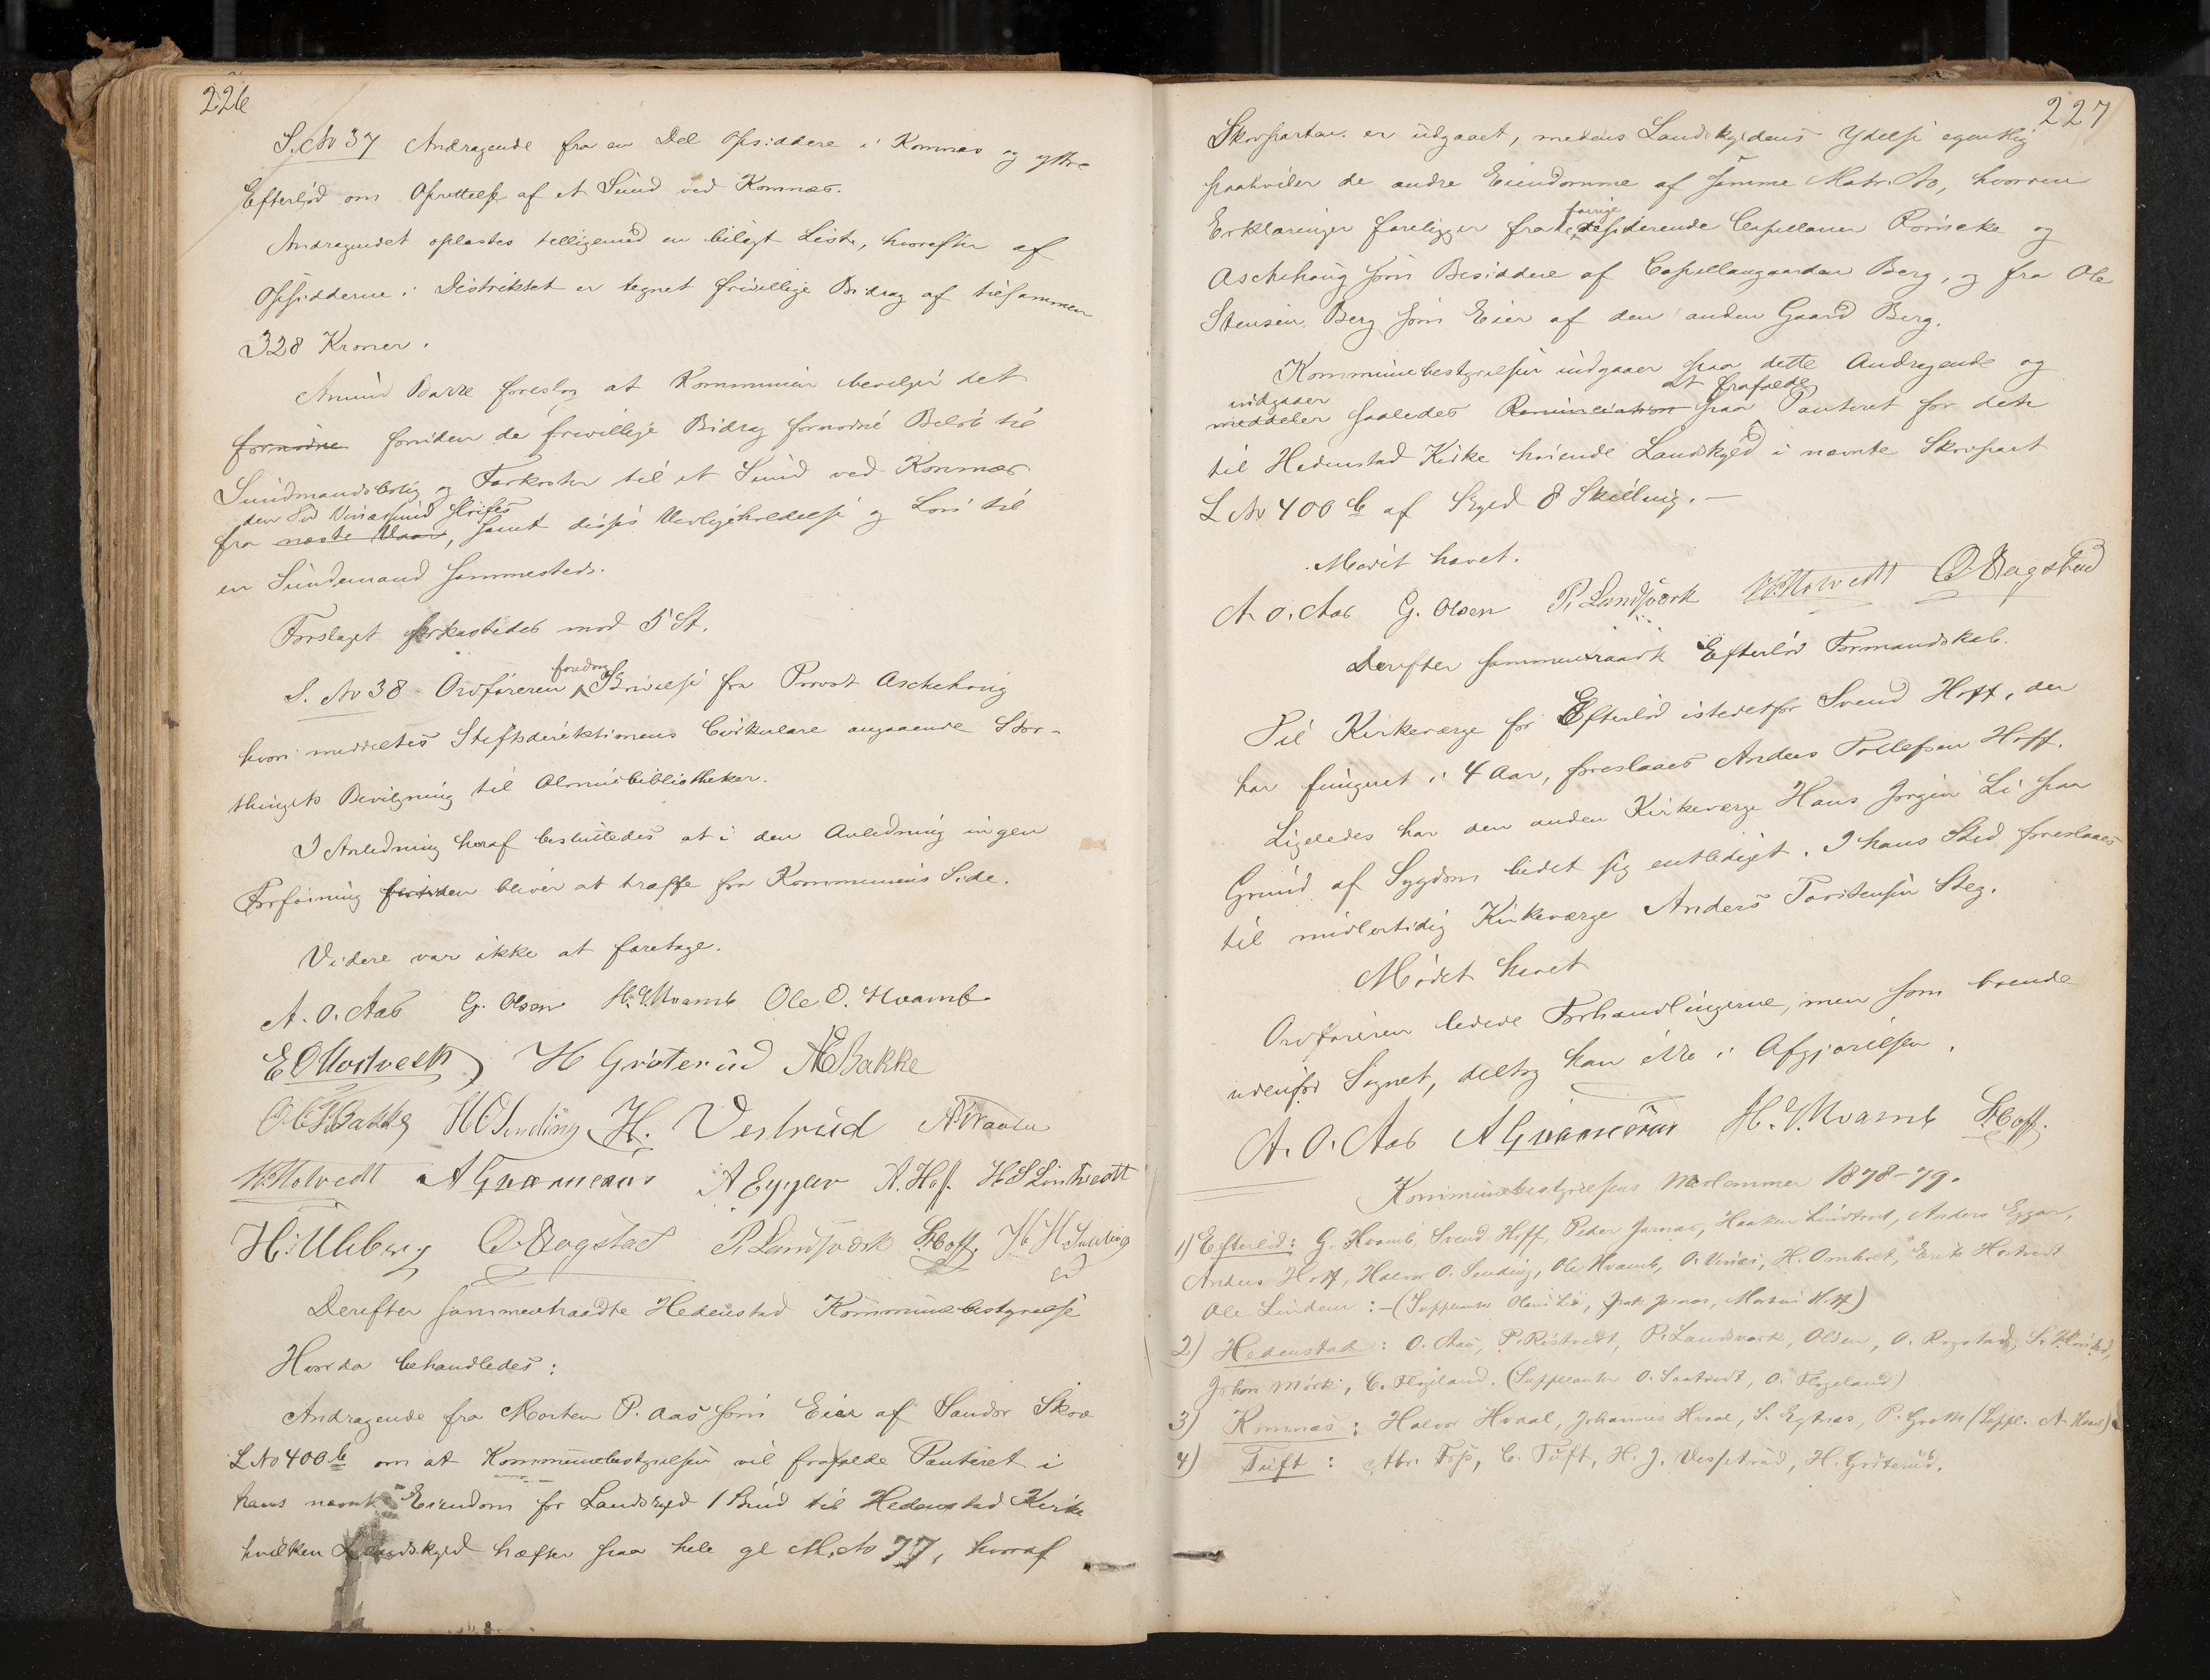 226
S. No 37 Andragende fra en Del Opsiddere i Komnæs og ytre
Efterløð om Oprettelse af et Sund ved Komnæs.
Andragendet oplæstes tilligemed en bilagt Liste, hvorefter af
Opsidderne i Distriktet er tegnet frivillige Bidrag af tilsammen
328 Kroner.
Bakke foreslog at Kommunen bevilger det
fornødne foruden de frivillige Bidrag fornødne Beløb til
Sundmandsbolig og Farkoster til et Sund ved Komnæs
den Tid sløifes
fra næste Vaar, samt disses Vedligeholdelse og Løn til
en Sundemand sammesteds.
Forslaget forkastedes mod 5 St.
foredrog
S. No 38 Ordføreren Skrivelse fra Provst Aschehoug
hvori meddeltes Stiftsdirektionens Cirkulære angaaende Stor-
thingets Bevilgning til Almuebibliotheker.
I Anledning heraf besluttedes at i den Anledning ingen
Forføining bliver at træffe fra Kommunens Side.
Videre var ikke at foretage.
A. O. Aas G. Olsen H. G. Kvamb Ole O. Kvamb
E O Mostvedt H Grøterud A E Bakke
O C Bakke H O Sending H. Vestrud
W. Molvedt A Gunnerius A Eggar A. Hof. H S Lindtvedt
H. Ulleberg O. Rogstad P. Landsværk S. Hoff. H. H. Sending
Derefter sammentraadte Hedenstad Kommunebestyrelse
Hvorda behandledes:
Andragende fra Morten P. Aas som Eier af Sandør Skov
L No 400 b om at Kommunebestyrelsen vil frafalde Panteret i
hans nævnte Eiendom for Landskyld 1 Hud til Hedenstad Kirke
hvilken Landskyld hæfter paa hele gl M. No 77, hvoraf
227
Skovparten er udgaaet, medens Landskyldens Ydelse egentlig
paahviler de andre Eiendomme af samme Matr. No, hvorom
forrige
Erklæringer foreligger fra residerende Capellaner Reincke og
Aschehoug som Besiddere af Capellangaarden Berg, og fra Ole
Stensen Berg som Eier af den anden Gaard Berg.
Kommunebestyrelsen indgaaer paa dette Andragende og
indgaaer at frafalde
meddeler saaledes Renunciation paa Panteret for dete
til Hedenstad Kirke hørende Landskyld i nævnte Skovpart
L No 400 b af Skyld 8 Skilling.—
Mødet hævet.
A. O. Aas G. Olsen P. Landsværk W. Molvedt O. Rogstad
Derefter sammentraadte Efterløð Formandskab.
Til Kirkeværge for Efterløð istedetfor Svend Hoff, der
har fungeret i 4 Aar, foreslaaes Anders Tollefsen Hoff.
Ligeledes har den anden Kirkeværge Hans Jørgen Li paa
Grund af Sygdom bedet sig entlediget. I hans Sted foreslaaes
til midlertidig Kirkeværge Anders Torstensen Steg.
Mødet hævet
Ordføreren ledede Forhandlingerne, men som boende
udenfor Sognet, deltog han ikke i Afgjørelsen.
A. O. Aas A Gunnerius H. G. Kvamb S. Hoff.
Kommunebestyrelsens Medlemmer 1878-79.
1) Efterløð: G. Kvamb, Svend Hoff, Peder Jarnæs, Haaken Lindtvedt, Anders Eggar,
Anders Hoff, Halvor O. Sending, Ole Kvamb, H. Omholt, Erik Mostvedt
Ole Linden :-(Suppleanter Jarnæs, Hoff)
2) Hedenstad: O. Aas, P. Ristvedt, P. Landsværk, Olsen, O. Rogstad,
John Mørk, C. Flogeland. (Suppleanter O. Saatvedt, O. Flogeland)
3) Komnæs: Halvor Hvaal, Johannes Hvaal, S. Egtnæs, P. Grette (Suppl. A. Hvaal)
4) Tuft: Abr. Foss, C. Tuft, H. J. Vestrud, H. Grøterud.